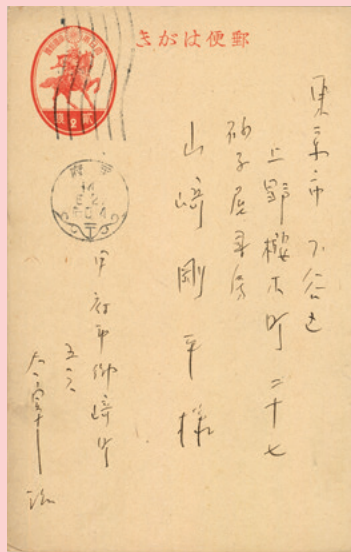 郵便はがき
東京市下谷区
上野桜木町二十七
砂子屋書房
山崎剛平様
甲府市御崎町
五六
太宰治